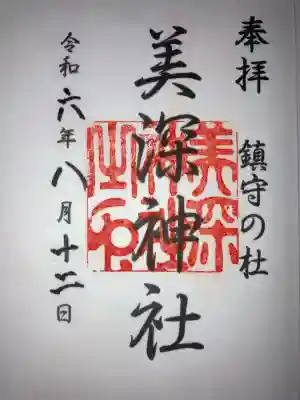 奉拝
鎮守の杜
美深神社
令和六年八月十二日